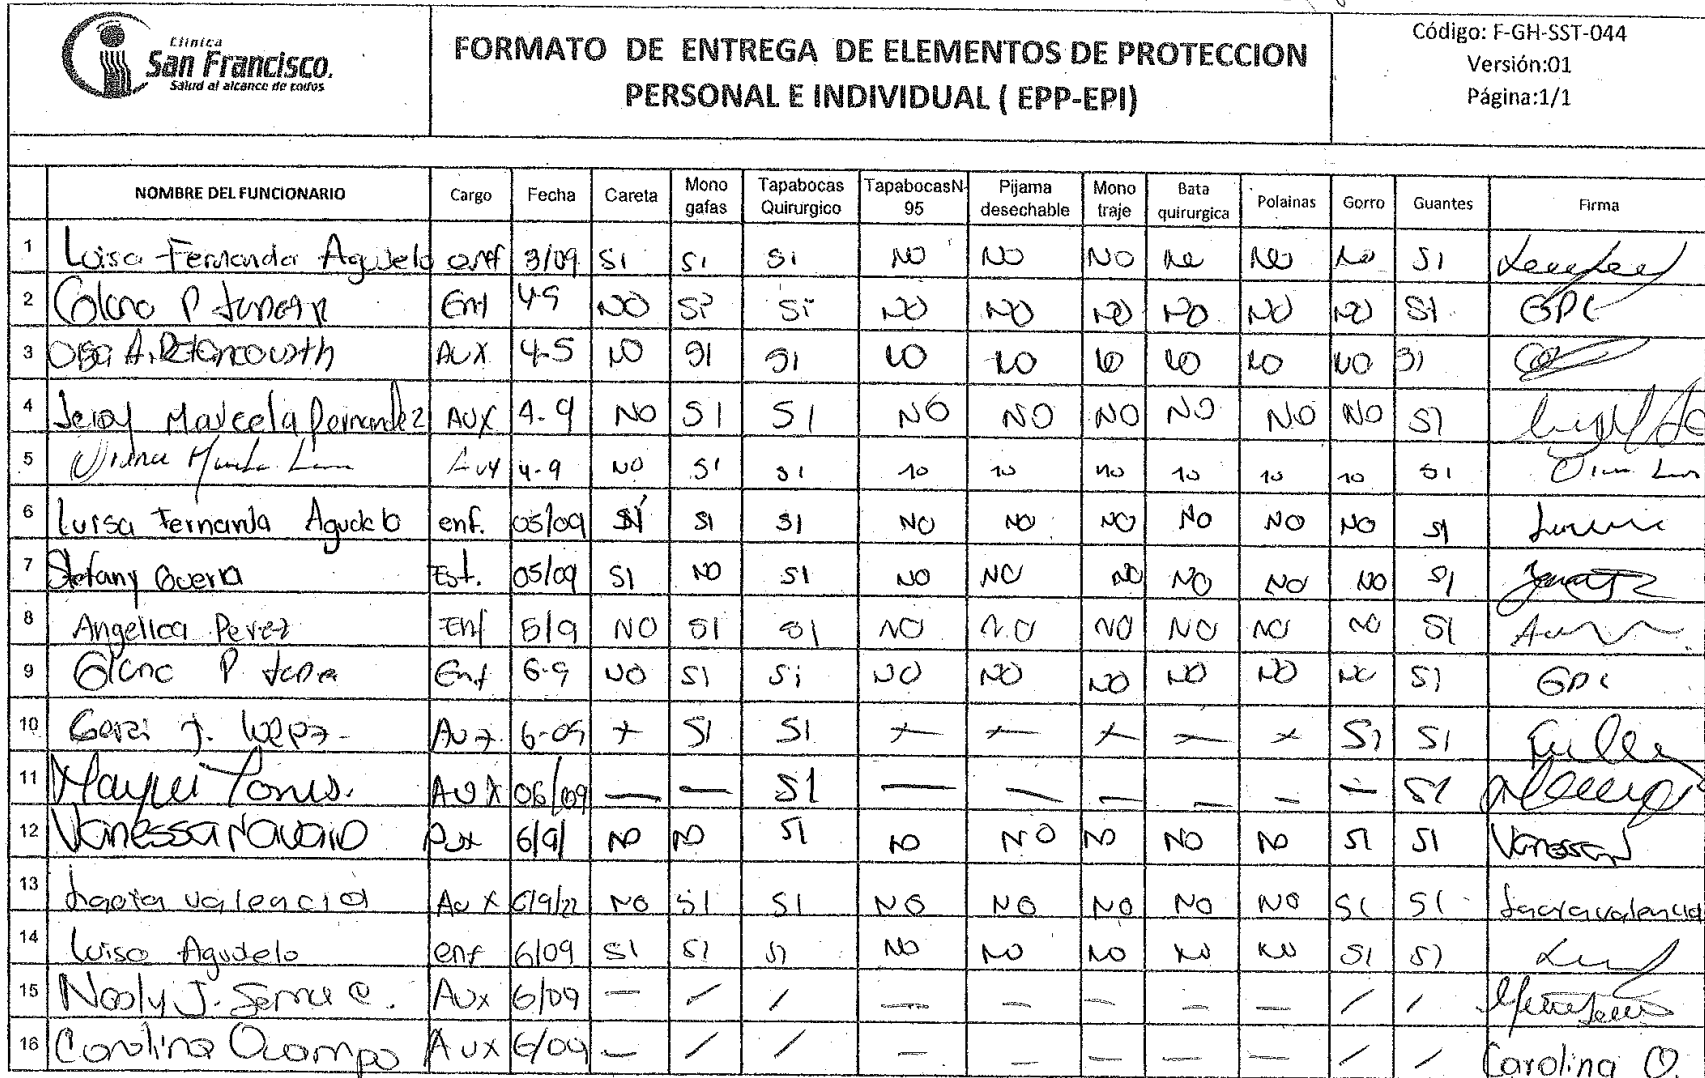 Clínica
San Francisco.
Salud al alcance de todos
FORMATO DE ENTREGA DE ELEMENTOS DE PROTECCION
PERSONAL E INDIVIDUAL ( EPP-EPI)
Código: F-GH-SST-044
Versión:01
Página:1/1
NOMBRE DEL FUNCIONARIO Cargo Fecha Careta Mono gafas Tapabocas Quirurgico TapabocasN-95 Pijama desechable Mono traje Bata quirurgica Polainas Gorro Guantes Firma
1 Luisa Fernanda Agudelo enf 3/09 SI SI Si NO NO NO No No No SI
2 P Enf 4-9 NO Si Si NO NO NO NO NO NO SI GPL
3 A. Betancourth AUX NO SI SI NO NO NO NO NO NO SI
4 Marcela AUX 4-9 NO SI SI NO NO NO NO NO NO SI
5 Aux 4-9 NO SI SI no no no no no no SI
6 Luisa Fernanda Agudelo enf. 05/09 SÍ SI SI NO NO NO NO NO NO SI
7 Stefany Guerra Est. 05/09 SI NO SI NO NO NO NO NO NO SI
8 Angelica Perez Enf 5/9 NO SI SI NO NO NO NO NO NO SI
9 P Enf 6-9 NO SI Si NO NO NO NO NO NO SI GPL
10 J. Aux 6-09 + SI SI + + + + + SI SI
11 AUX 06/09 — — SI — — — — — — SI
12 Vanessa Navarro Aux 6/9/ NO NO SI NO NO NO NO NO SI SI Vanessa N
13 valencia Aux 6/9/22 NO SI SI NO NO NO NO NO SI SI
14 Luisa Agudelo enf 6/09 SI SI SI NO NO NO NO NO SI SI
15 J. Aux 6/09 — / / — — — — — / /
16 Carolina Ocampo Aux 6/09 — / / — — — — — / / Carolina O.